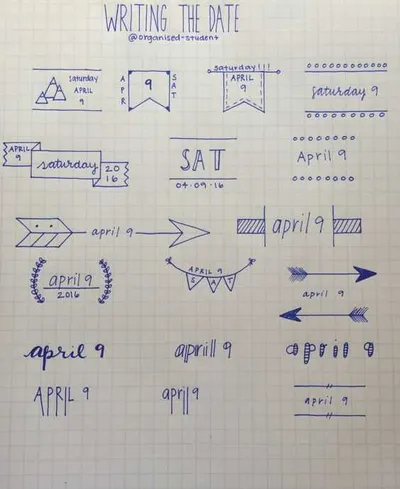 WRITING THE DATE
@organised-student
saturday
APRIL
9
APR
9
SAT
saturday!!!
APRIL
9
saturday 9
APRIL
9
saturday
20
16
SAT
04.09.16
April 9
april 9
april 9
april 9
2016
APRIL 9
SAT
april 9
april 9
apriill 9
april 9
APRIL 9
april 9
april 9